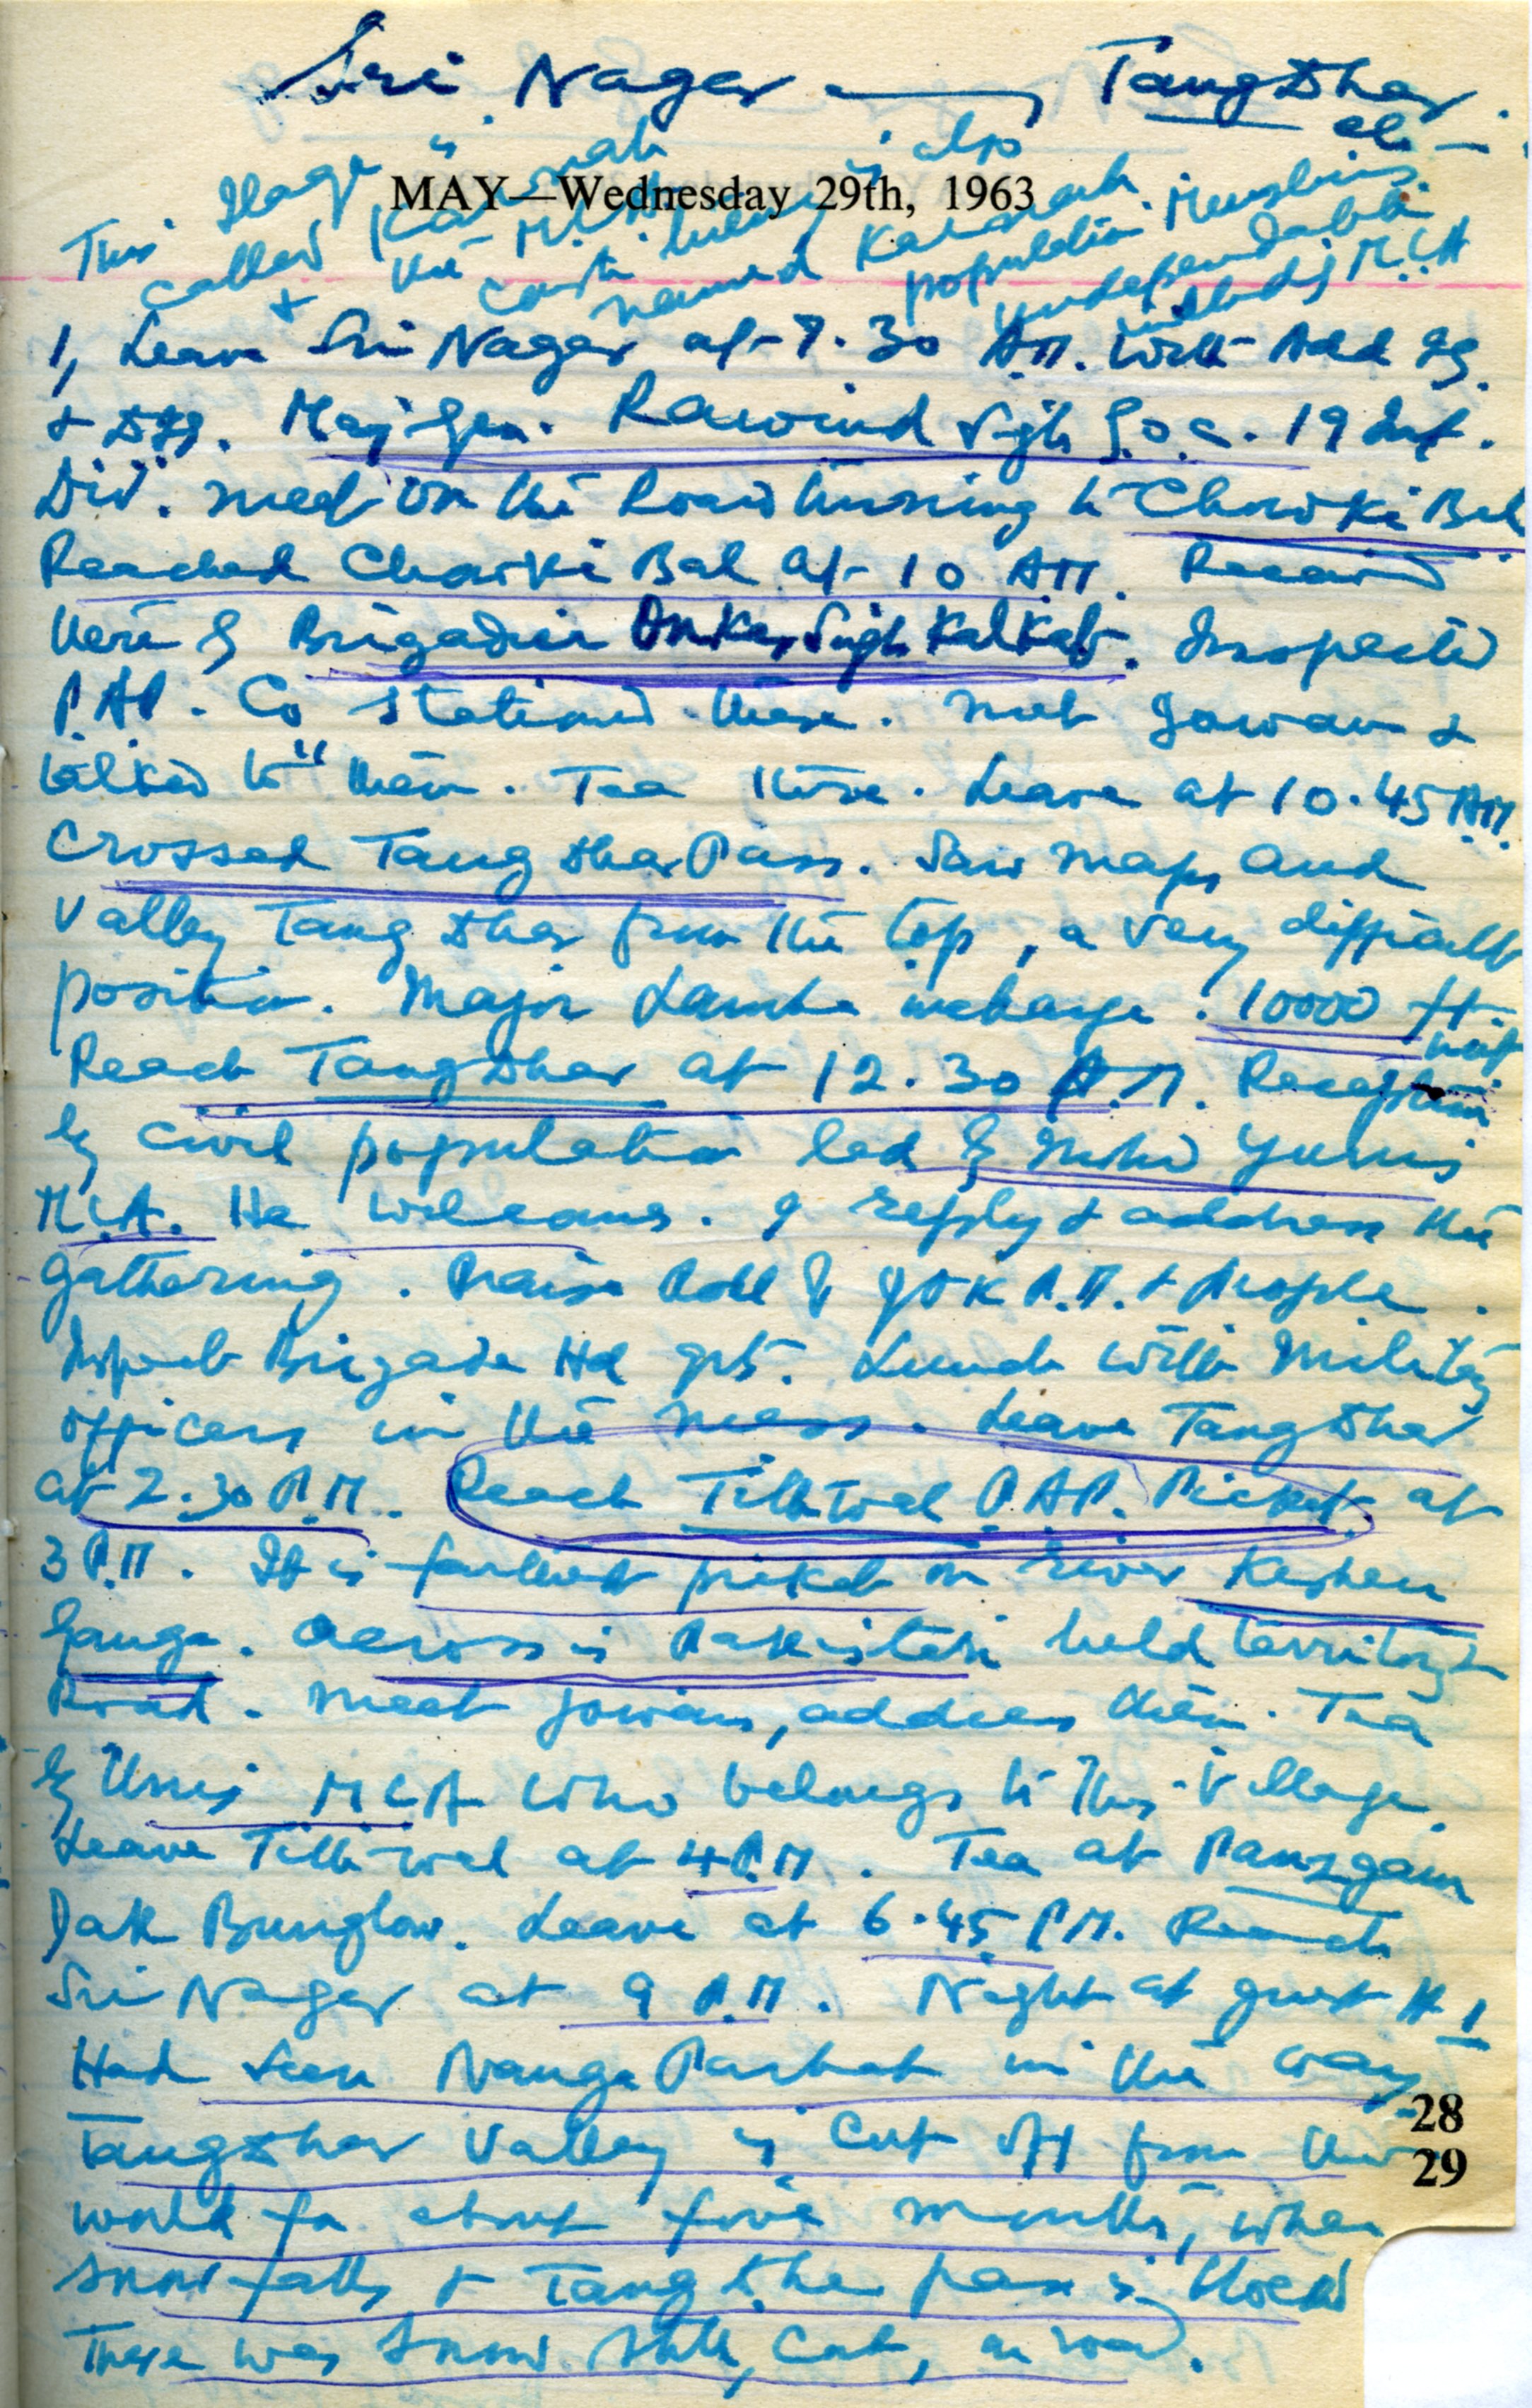 Sri Nagar — Tangdhar
etc —
MAY—Wednesday 29th, 1963
This Ilaqa is
called Karnah
& the M.L.A.
constituency is also
named Karnah.
population Muslims.
undependable
M.L.A
1, Leave Sri Nagar at 7.30 A.M. with Add IG.
& DIG. Maj Gen. Rawind Sigh G.O.C. 19 Inf.
Div. meet on the Road turning to Chowki Bal
Reached Chowki Bal at 10 AM. Received
here by Brigadier Onkar Sigh Kalkat. Inspected
P.A.P. Co stationed there. met Jowan &
talked to them. Tea there. Leave at 10.45 A.M.
Crossed Tang dhar Pass. Saw maps and
Valley Tang dhar from the top, a very difficult
position. Major Lamba incharge. 10000 ft.
Reach Tangdhar at 12.30 P.M. Reception
by civil population led by Mohd Yunis
M.L.A. He welcomes. I reply & address the
gathering. Praise Role of J & K P.M. & people.
Inspect Brigade Hd qrs. Lunch with Military
officers in the mess. Leave Tangdhar
at 2.30 P.M. Reach Tithwal P.A.P. Picket at
3 P.M. It is farthest picket on river Kishen
Ganga. Across is Pakistan held territory &
Road. Meet jowans, address them. Tea
by Unis MLA who belongs to this Village.
Leave Tithwal at 4 P.M. Tea at Panzgam
Dak Bunglow. Leave at 6.45 P.M. Reach
Sri Nagar at 9 P.M. Night at guest H 1
Had seen Nanga Parbat in the way
28
Tangdhar Valley is Cut off from the
29
world for about five months, when
snow falls & Tang dhar pass is blocked
There was snow still, cut, on road.